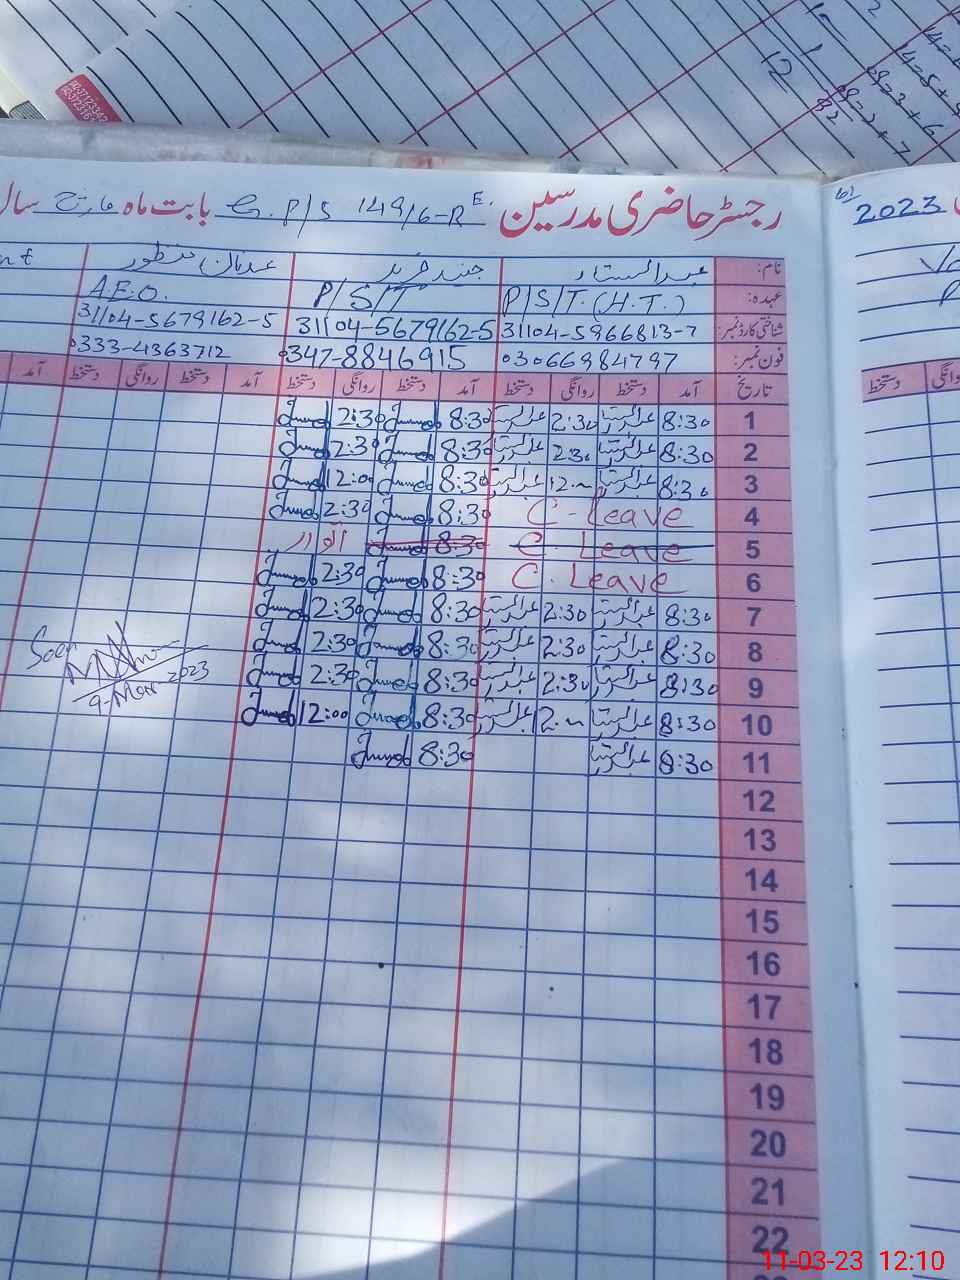 12
رجسٹر حاضری مدرسین G. P/S 149/6-R E. بابت ماہ مارچ سال
2023
نام: عبدالستار جنید فرید عدنان منظور
عہدہ: P/S/T. (H.T.) P/S/T A.E.O.
شناختی کارڈ نمبر: 31104-5966813-7 31104-5679162-5 31104-5679162-5
فون نمبر: 03066984797 0347-8846915 0333-4363712
تاریخ آمد دستخط روانگی دستخط آمد دستخط روانگی دستخط آمد دستخط روانگی دستخط آمد
روانگی دستخط
1 8:30 عبدالستار 2:30 عبدالستار 8:30 Junaid 2:30 Junaid
2 8:30 عبدالستار 2:30 عبدالستار 8:30 Junaid 2:30 Junaid
3 8:30 عبدالستار 12:00 عبدالستار 8:30 Junaid 12:00 Junaid
4 C-Leave 8:30 Junaid 2:30 Junaid
5 C. Leave 8:30 Junaid اتوار
6 C. Leave 8:30 Junaid 2:30 Junaid
7 8:30 عبدالستار 2:30 عبدالستار 8:30 Junaid 2:30 Junaid
8 8:30 عبدالستار 2:30 عبدالستار 8:30 Junaid 2:30 Junaid
9 8:30 عبدالستار 2:30 عبدالستار 8:30 Junaid 2:30 Junaid
Seen
9-Mar-2023
10 8:30 عبدالستار 12:00 عبدالستار 8:30 Junaid 12:00 Junaid
11 8:30 عبدالستار 8:30 Junaid
12
13
14
15
16
17
18
19
20
21
22
11-03-23 12:10